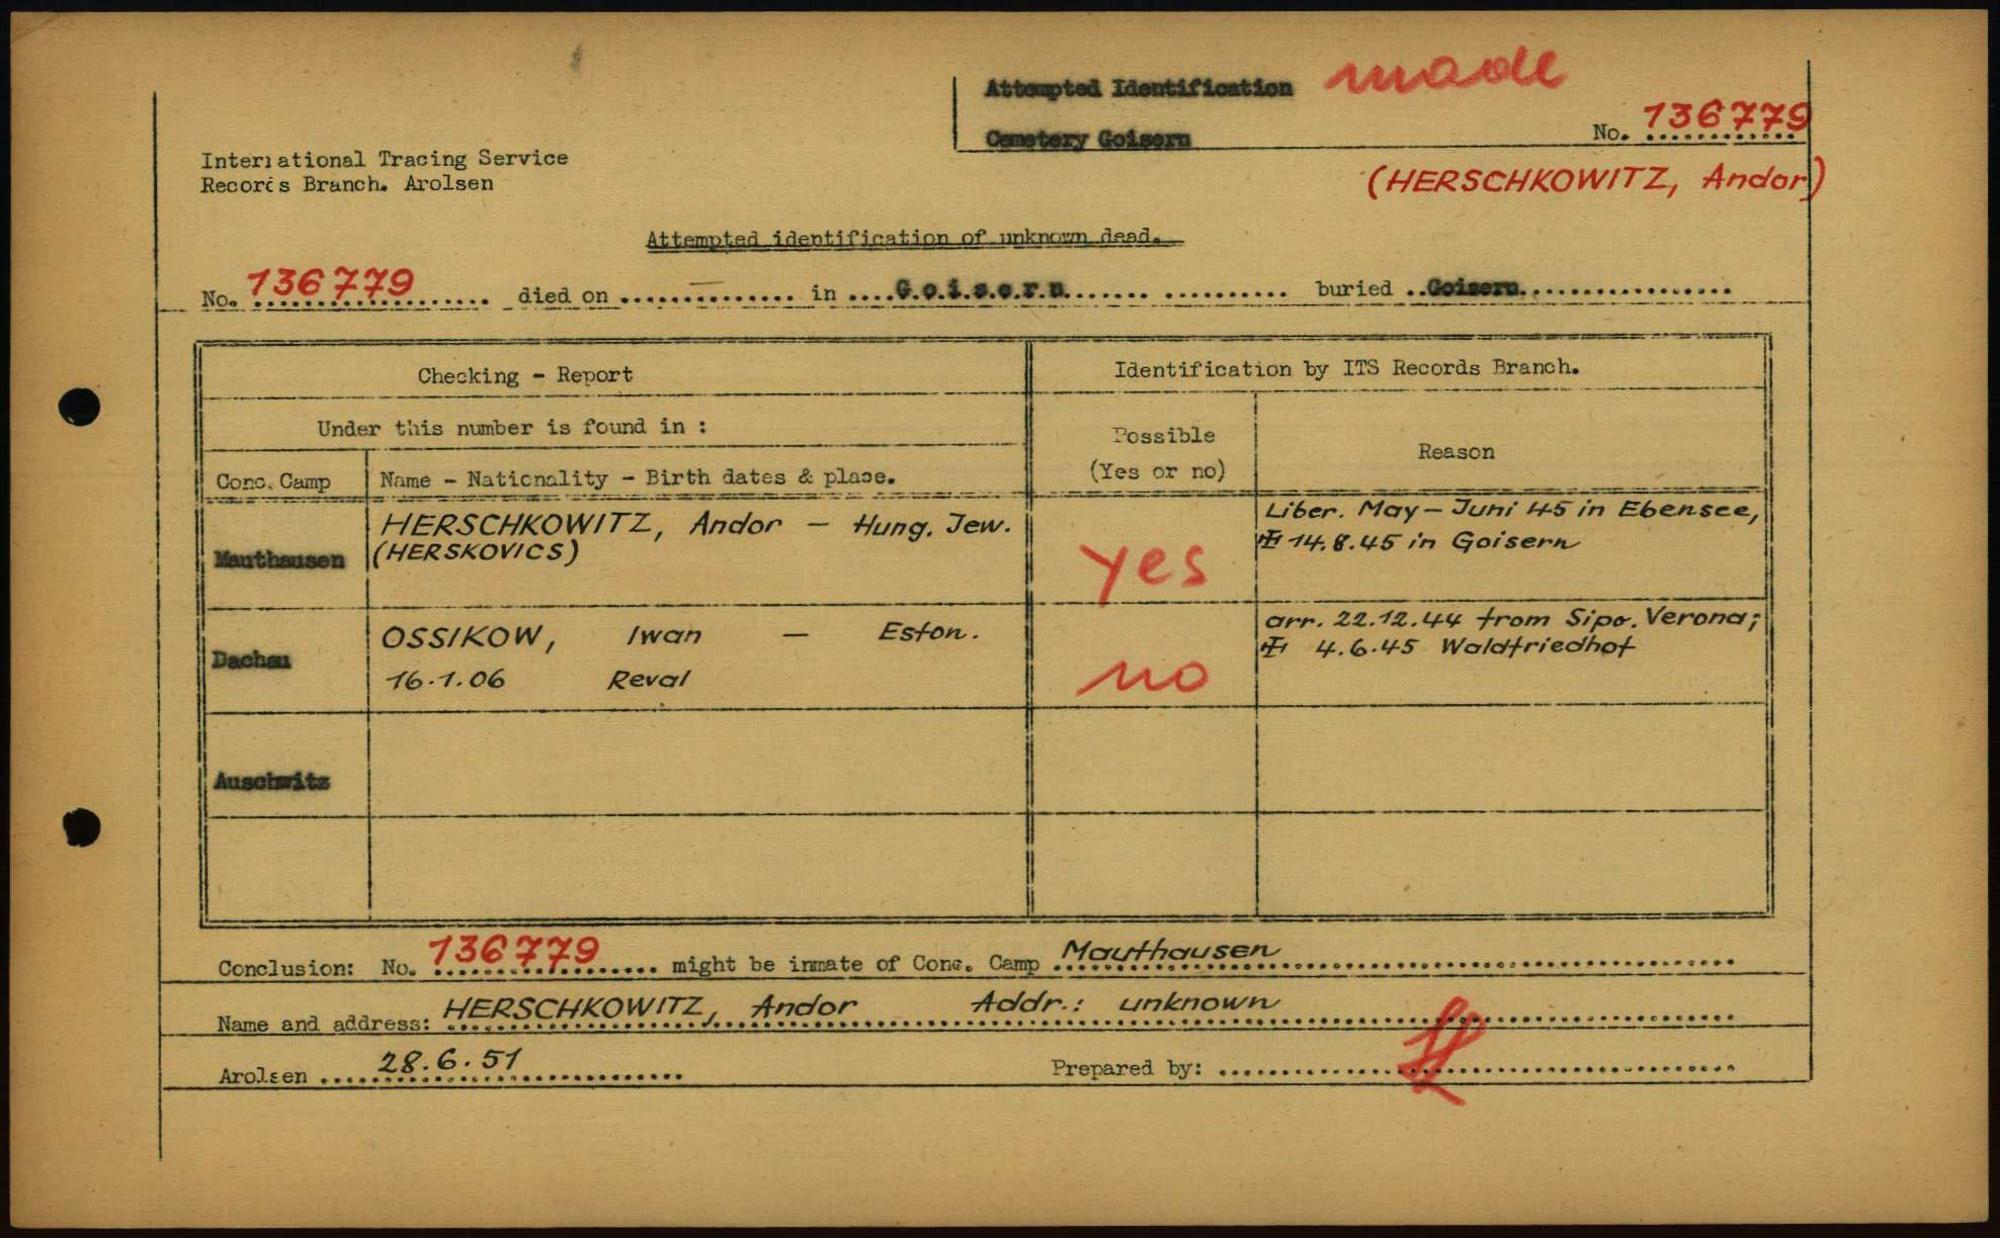 Attempted Identification made
Cemetery Goisern
No. 136779
(HERSCHKOWITZ, Andor)
International Tracing Service
Records Branch. Arolsen
Attempted identification of unknown dead.
No. 136779 died on — in Goisern buried Goisern
Checking - Report
Identification by ITS Records Branch.
Under this number is found in :
Possible
(Yes or no)
Reason
Conc. Camp
Name - Nationality - Birth dates & place.
Mauthausen
HERSCHKOWITZ, Andor — Hung. Jew.
(HERSKOVICS)
yes
Liber. May - Juni 45 in Ebensee,
14.8.45 in Goisern
Dachau
OSSIKOW, Iwan — Eston.
16.1.06 Reval
no
arr. 22.12.44 from Sipo. Verona;
4.6.45 Waldfriedhof
Auschwitz
Conclusion: No. 136779 might be inmate of Conc. Camp Mauthausen
Name and address: HERSCHKOWITZ, Andor Addr.: unknown
Arolsen 28.6.51
Prepared by: